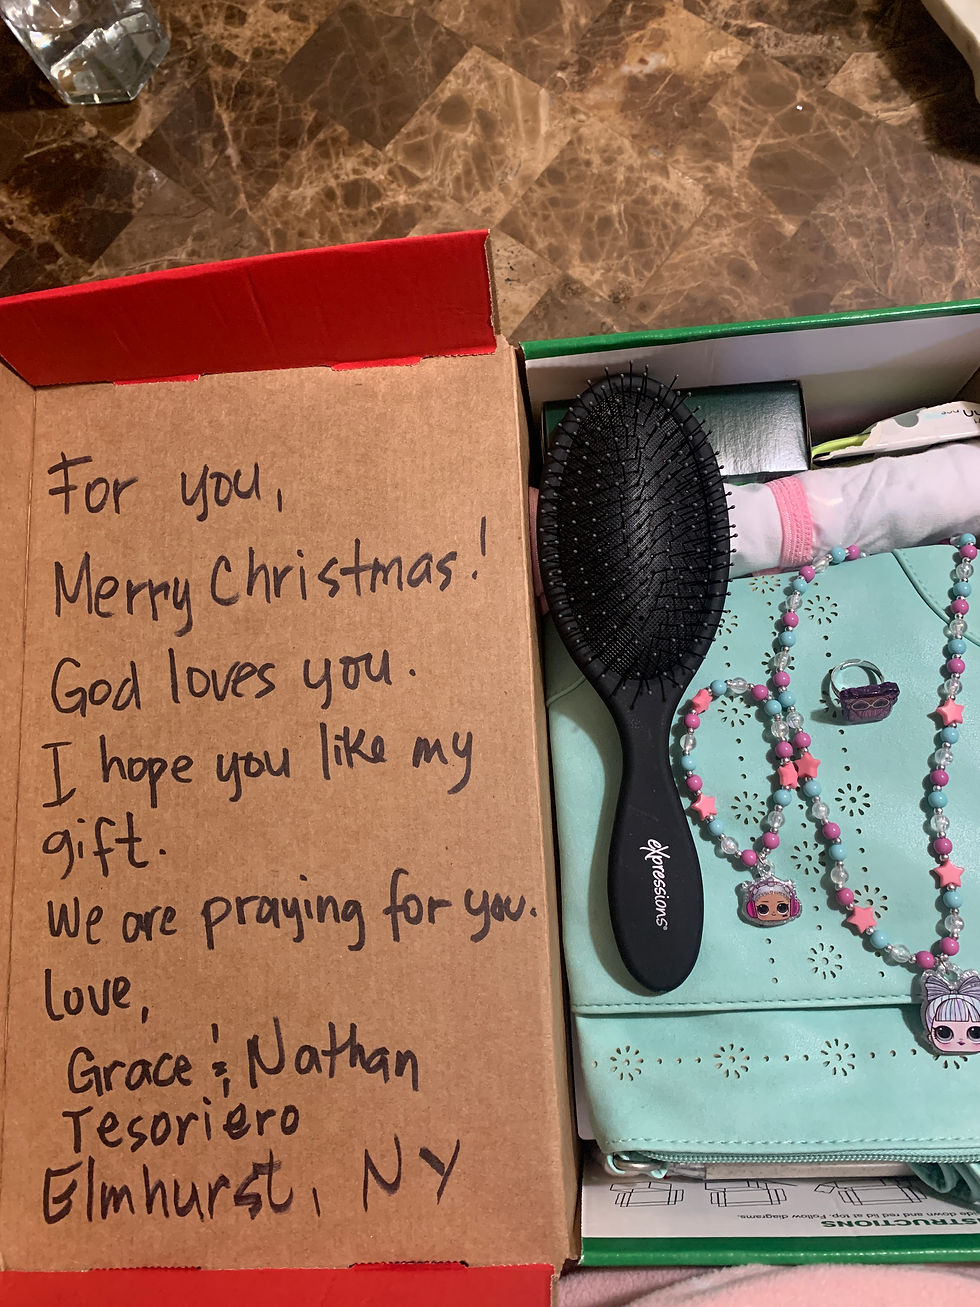 For you,
Merry Christmas!
God loves you.
I hope you like my
gift.
We are praying for you.
love,
Grace & Nathan
Tesoriero
Elmhurst, NY
eXpressions®
STRUCTIONS
side down and red lid at top. Follow diagrams.